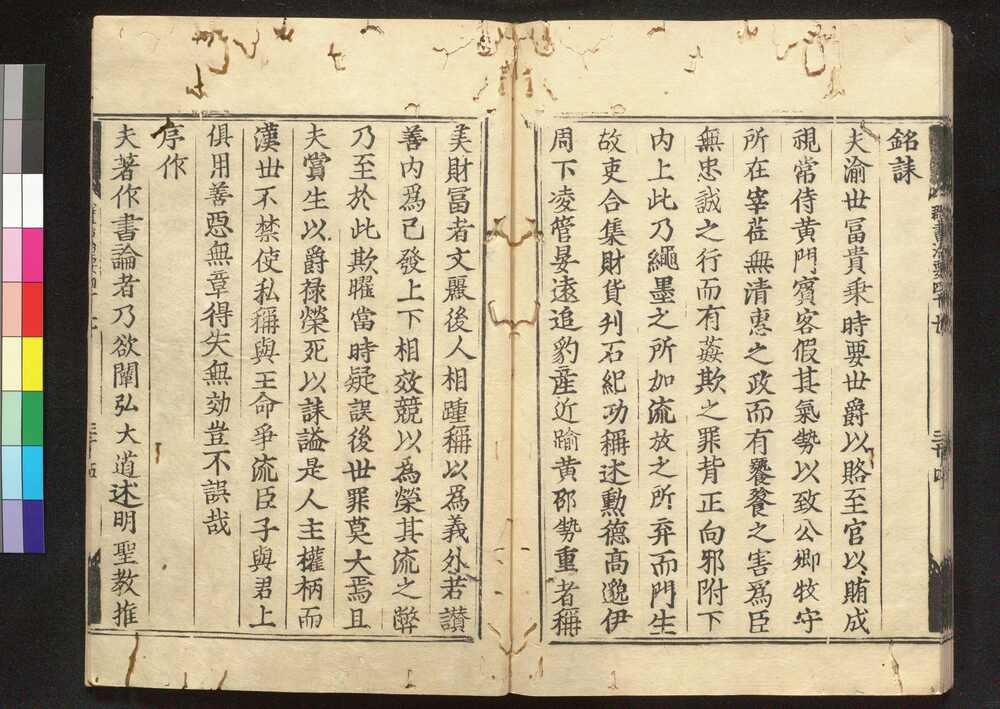 銘誄
夫渝世冨貴乗時要世爵以賂至官以賄成
視常侍黄門賓客假其氣勢以致公卿牧守
所在宰莅無清惠之政而有饕餮之害爲臣
無忠誠之行而有姦欺之罪背正向邪附下
内上此乃繩墨之所加流放之所弃而門生
故吏合集財貨刋石紀功稱述勲德高邈伊
周下凌管晏遠追豹産近踰黄邵勢重者稱
美財冨者文麗後人相踵稱以爲義外若讃
善内爲己發上下相效競以爲榮其流之弊
乃至於此欺曜當時疑誤後世罪莫大焉且
夫賞生以爵禄榮死以誄謚是人主權柄而
漢世不禁使私稱與王命争流臣子與君上
俱用善惡無章得失無効豈不誤哉
序作
夫著作書論者乃欲闡弘大道述明聖教推